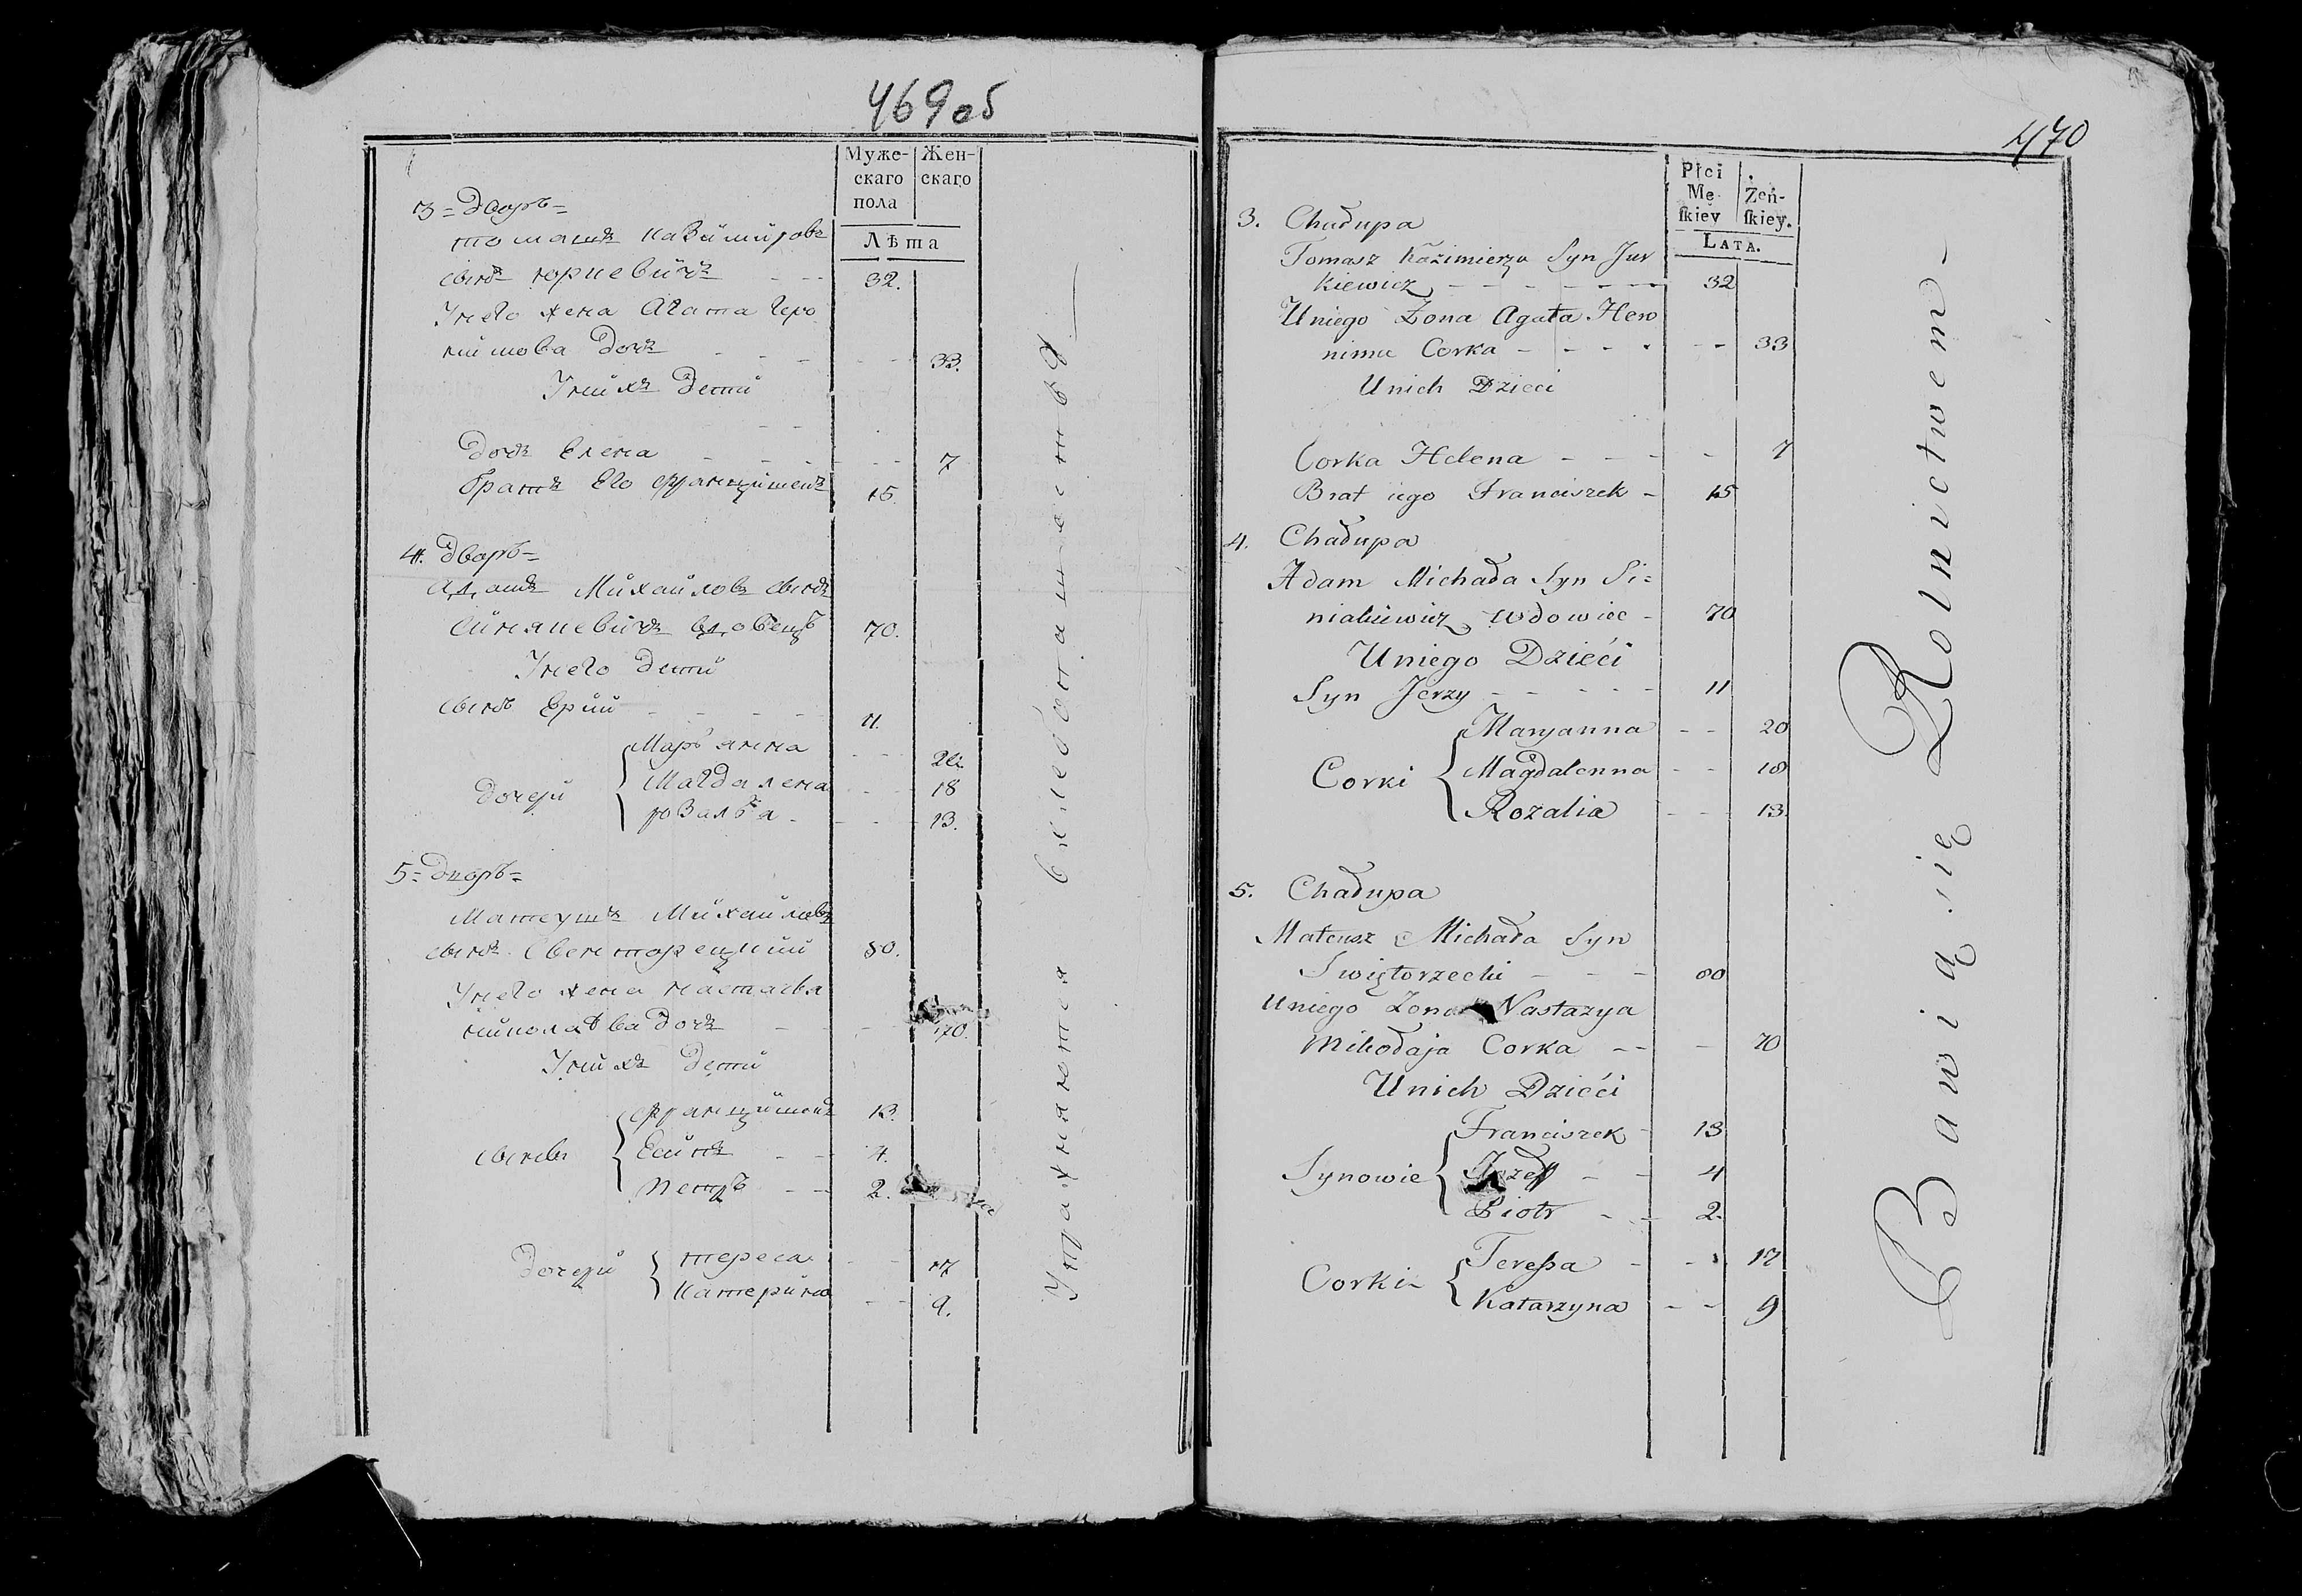 469об
Муже-
скаго
пола
Жен-
скаго
Лѣта
3= Дворъ=
томашъ казимировъ
сынъ юркевичъ - - 32.
У него жена Агата Геро
нимова дочь - - - - - 33.
У нихъ дети
дочь Елена - - - - - 7
братъ Его францишекъ 15.
4. Дворъ=
Адамъ Михаиловъ сынъ
синякевичъ вдовецъ 70.
У него дети
сынъ Ерий - - - - 11.
дочери
Марьянна - -
Магдалена - - 18
розалья - - - - 13.
5= Дворъ=
Матеушъ Михаиловъ
сынъ Свенторецкий 80.
У него жена настасья
николаева дочь - - - 70.
У нихъ дети
сыновья
францишекъ 13.
Есипъ - - 4.
петръ - - 2.
дочери
тереса - - 17
катерина - - 9.
Упражняются хлебопашествомъ
470
Płci
Mę-
skiey
Żeń-
skiey.
LATA.
3. Chałupa
Tomasz Kazimierza Syn Jur
kiewicz - - - - - - 32
Uniego Żona Agata Hero
nima Corka - - - - - - 33
Unich Dzieci
Corka Helena - - - - 7
Brat iego Franciszek - 15
4. Chałupa
Adam Michała Syn Si=
niakiewicz wdowiec - 70
Uniego Dzieći
Syn Jerzy - - - - - 11
Corki
Maryanna - - 20
Magdalenna - - 18
Rozalia - - 13.
5. Chałupa
Mateusz Michała Syn
Swiętorzecki - - - 80
Uniego Żona Nastazya
Mikołaja Corka - - - 70
Unich Dzieći
Synowie
Franciszek - 13
Jozeff - - 4
Piotr - - 2.
Corki
Teressa - - - 17
Katarzyna - - 9
Bawią się Rolnictwem -